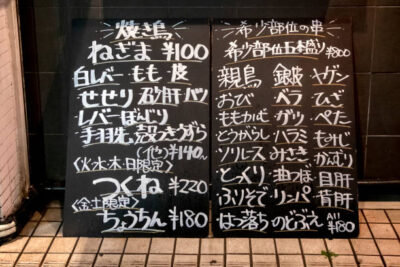 焼き鳥
ねぎま ¥100
白レバー もも 皮
せせり 砂肝 ハツ
レバー ぼんじり
手羽先 殻つきうずら
(他) ¥140~
〈火水木日限定〉
つくね ¥220
〈金土限定〉
ちょうちん ¥180
希少部位の串
希少部位五本盛り ¥800
親鳥 銀皮 ヤゲン
おび ベラ ひざ
ももかむ グツ ぺた
とうがらし ハラミ もみじ
ソリレース みさき かんむり
とっくり 曲つぼ 目肝
ふりそで リンパ 背肝
はつ落ち のどぶえ All ¥180